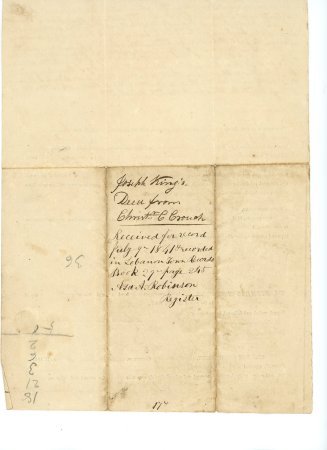 Joseph King's
Deed from
Christr. C Crouch
Received for record
July 9th 1841 & recorded
in Lebanon Town Records
Book 29 page 245
Asa A. Robinson
Register
36